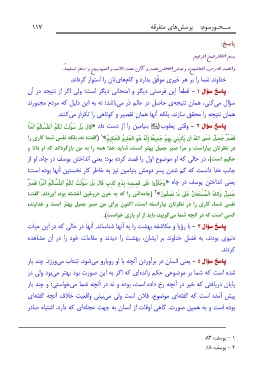 محورسوم: پرسش‌های متفرقه ۱۱۷
پاسخ:
بسم الله الرحمن الرحیم
خداوند شما را بر هر خیری موفق بدارد و گام‌هایتان را استوار گرداند.
پاسخ سؤال ۱ - قطعاً این فرصتی دیگر و امتحانی دیگر است؛ ولی اگر از نتیجه در آن
سؤال می‌کنی، همان نتیجه‌ی حاصل در عالم ذر می‌باشد؛ نه به این دلیل که مردم مجبورند
همان نتیجه را محقق سازند. بلکه آنها همان تقصیر و کوتاهی را تکرار می‌کنند.
پاسخ سؤال ۲ - وقتی یعقوب بنیامین را از دست داد «قَالَ بَلْ سَوَّلَتْ لَكُمْ أَنفُسُكُمْ أَمْرًا
فَصَبْرٌ جَمِيلٌ عَسَى اللّهُ أَن يَأْتِيَنِي بِهِمْ جَمِيعًا إِنَّهُ هُوَ الْعَلِيمُ الْحَكِيمُ»۱ (گفت: نه، بلکه نفس شما کاری را
در نظرتان بیاراست و مرا صبر جمیل بهتر است، شاید خدا همه را به من بازگرداند که او دانا و
حکیم است)، در حالی که او موضوع اول را قصد کرده بود؛ یعنی انداختن یوسف در چاه. او از
جانب خدا دانست که گم شدن پسر دومش بنیامین نیز به خاطر کار نخستین آنها بوده است؛
یعنی انداختن یوسف در چاه «وَجَآؤُوا عَلَى قَمِيصِهِ بِدَمٍ كَذِبٍ قَالَ بَلْ سَوَّلَتْ لَكُمْ أَنفُسُكُمْ أَمْرًا فَصَبْرٌ
جَمِيلٌ وَاللّهُ الْمُسْتَعَانُ عَلَى مَا تَصِفُونَ»۲ (جامه‌اش را که به خون دروغین آغشته بود، آوردند. گفت:
نفس شما، کاری را در نظرتان بیاراسته است. اکنون برای من صبر جمیل بهتر است و خداوند،
کسی است که در آنچه شما می‌گویید، باید از او یاری خواست).
پاسخ سؤال ۳ - با رؤیا و مکاشفه بهشت را به آنها شناساند. آنها در حالی که در این حیات
دنیوی بودند، به فضل خداوند بر ایشان، بهشت را دیدند و مقامات خود را در آن مشاهده
کردند.
پاسخ سؤال ۴ - یعنی انسان در برآوردن آنچه با او روبارو می‌شود، شتاب می‌ورزد. چند بار
شده است که شما بر موضوعی حکم رانده‌ای که اگر به این صورت بود بهتر می‌بود ولی در
پایان دریافتی که خیر در آنچه رخ داده است، بوده و نه در آنچه شما می‌خواستی؛ و چند بار
پیش آمده است که گفته‌ای موضوع، فلان است ولی می‌بینی واقعیت خلاف آنچه گفته‌ای
بوده است و به همین صورت. گاهی اوقات از انسان به جهت عجله‌ای که دارد، اشتباه صادر
۱ - یوسف: ۸۳.
۲ - یوسف: ۱۸.